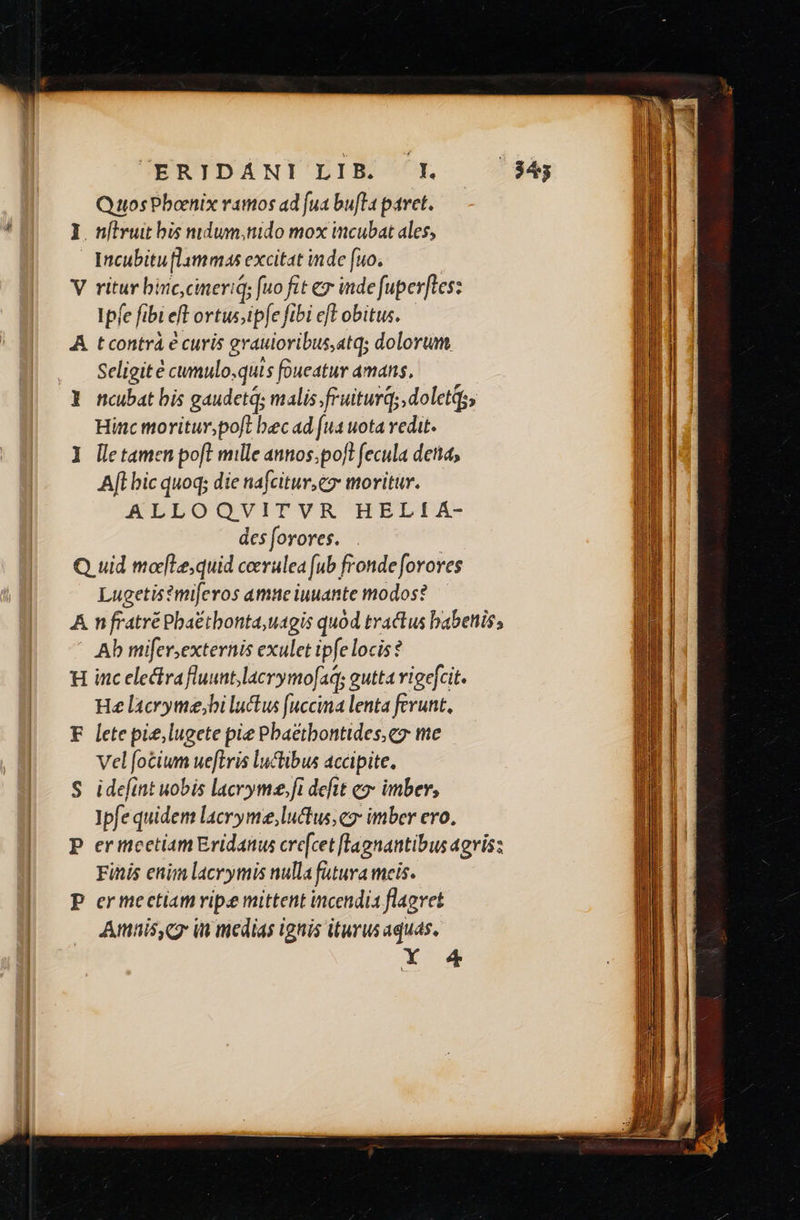 ERIDANI LIB. I. 343
Quos Phœnix ramos ad ſua buſta paret.
I nſtruit his nidum, nido mox incubat ales,
Incubitu flammas excitat inde ſuo.
V ritur hinc, cineriq; ſuo fit & inde ſuperſtes:
Ipſe ſibi eſt ortus, ipſe ſibi eſt obitus.
A t contrà è curis grauioribus, atq; dolorum
Seligit è cumulo, quis foueatur amans.
I ncubat his gaudetq; malis, fruiturq;, doletq;,
Hinc moritur, poſt hæc ad ſua uota redit.
I lle tamen poſt mille annos, poſt ſecula dena,
Aſt hic quoq; die naſcitur, & moritur.
ALLOQVITVR HELIA-
des ſorores.
Q uid mœſtæ, quid cœrulea ſub fronde ſorores
Lugetis? miſeros amne iuuante modos?
A n fratrē Phaëthonta, uagis quòd tractus habenis,
Ah miſer, externis exulet ipſe locis?
H inc electra fluunt, lacrymoſaq; gutta rigeſcit.
Hæ lacrymæ, hi luctus ſuccina lenta ferunt.
F lete piæ, lugete piæ Phaëthontides, & me
Vel ſocium ueſtris luctibus accipite.
S i deſint uobis lacrymæ, ſi deſit & imber,
Ipſe quidem lacrymæ, luctus, & imber ero.
P er me etiam Eridanus creſcet ſtagnantibus agris:
Finis enim lacrymis nulla futura meis.
P er me etiam ripæ mittent incendia flagret
Amnis, & in medias ignis iturus aquas.
Y 4